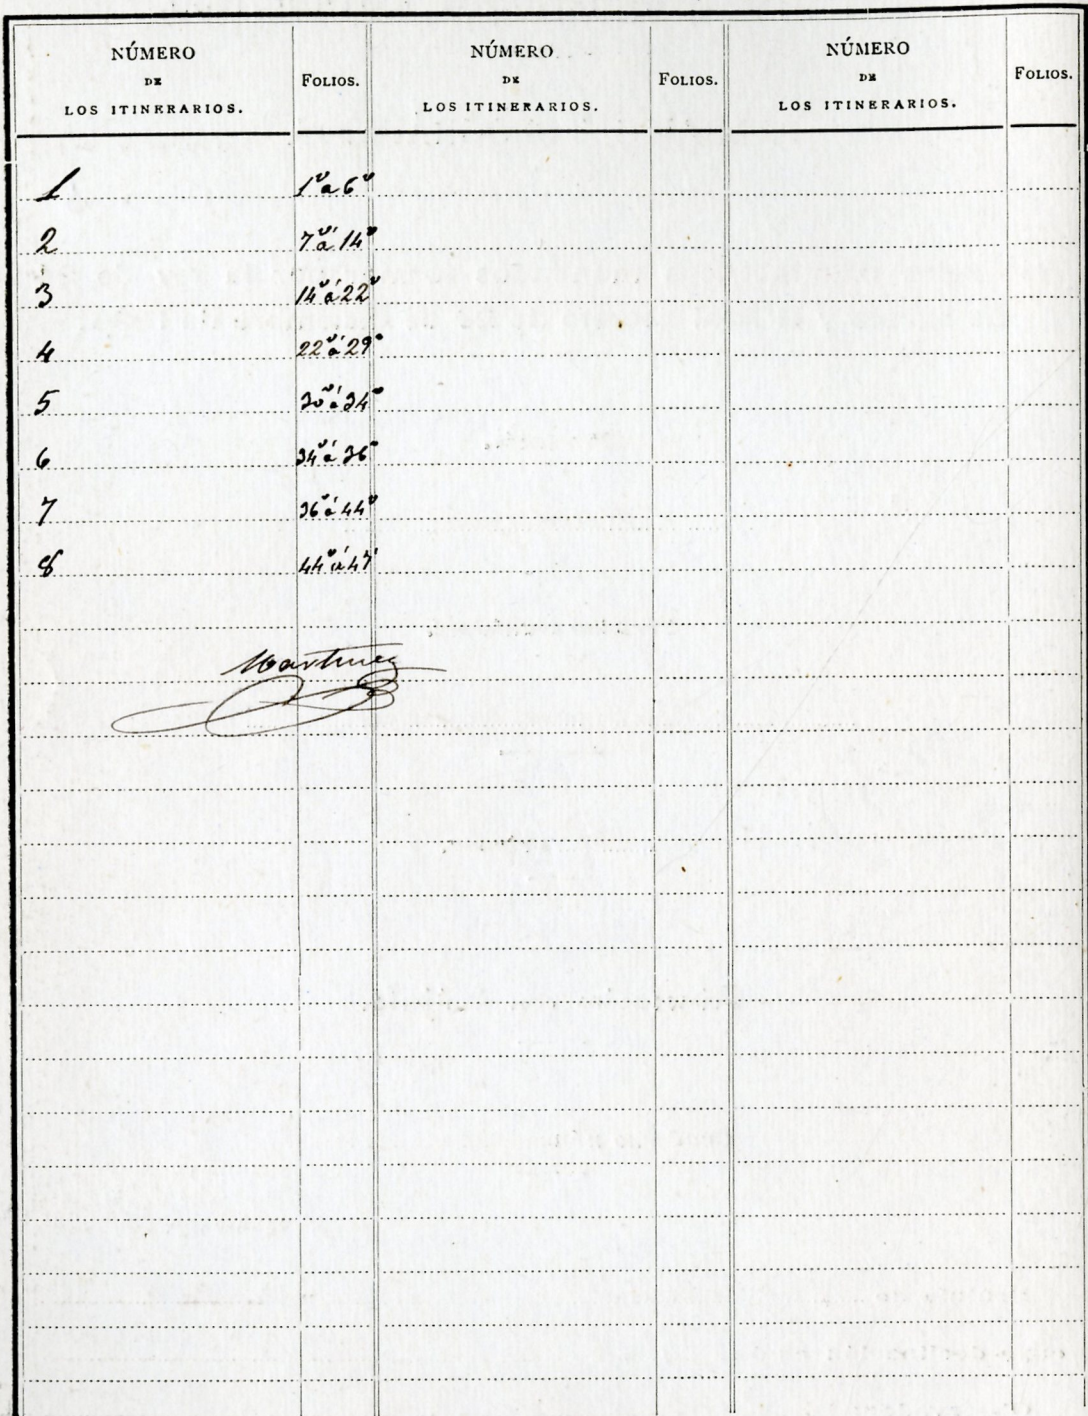 NÚMERO DE LOS ITINERARIOS. FOLIOS. NÚMERO DE LOS ITINERARIOS. FOLIOS. NÚMERO DE LOS ITINERARIOS. FOLIOS.
1 1º a 6º
2 7º á 14º
3 14º á 22º
4 22º á 29º
5 30º á 34º
6 34º á 36º
7 36º á 44º
8 44º á 47
Martinez